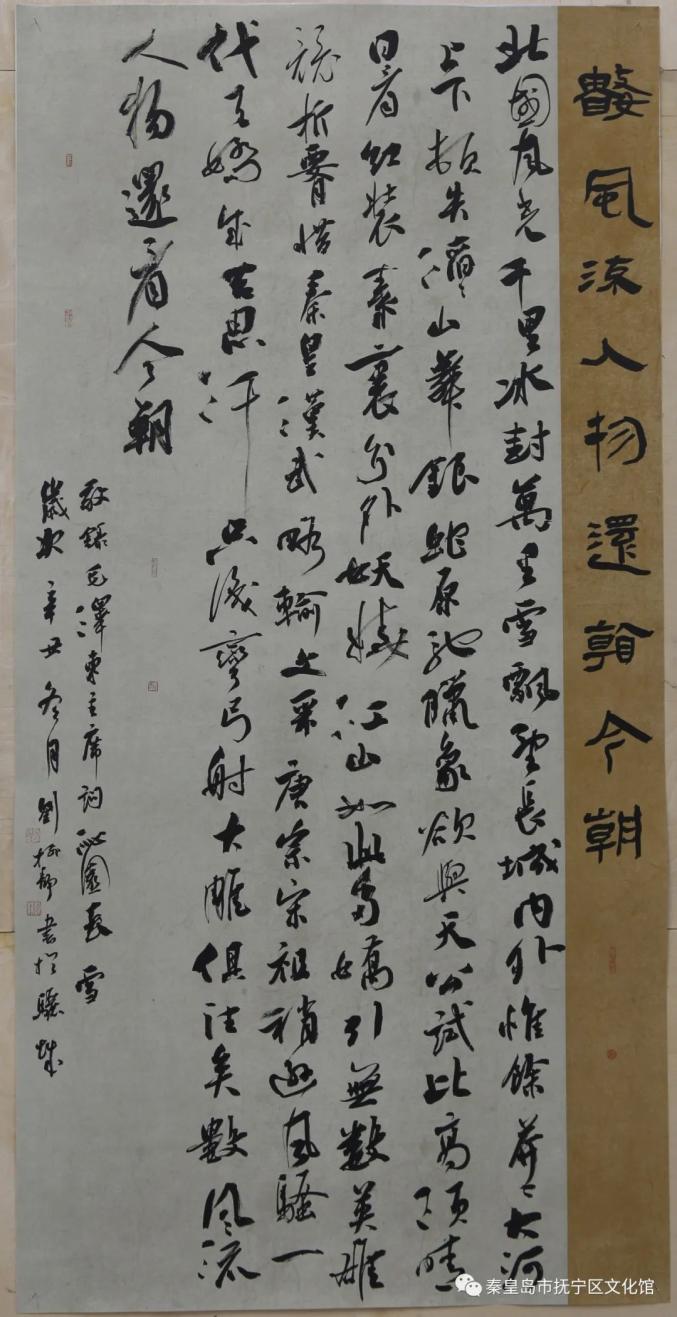 數風流人物還看今朝
北國風光千里冰封萬里雪飄望長城內外惟餘莽〻大河
上下頓失滔〻山舞銀蛇原馳臘象欲與天公試比高須晴
日看紅裝素裹分外妖嬈江山如此多嬌引無數英雄
競折腰惜秦皇漢武略輸文采唐宗宋祖稍遜風騷一
代天驕成吉思汗只識彎弓射大雕俱往矣數風流
人物還看今朝
敬錄毛澤東主席詞沁園春雪
歲次辛丑冬月劉書於驪城
秦皇岛市抚宁区文化馆